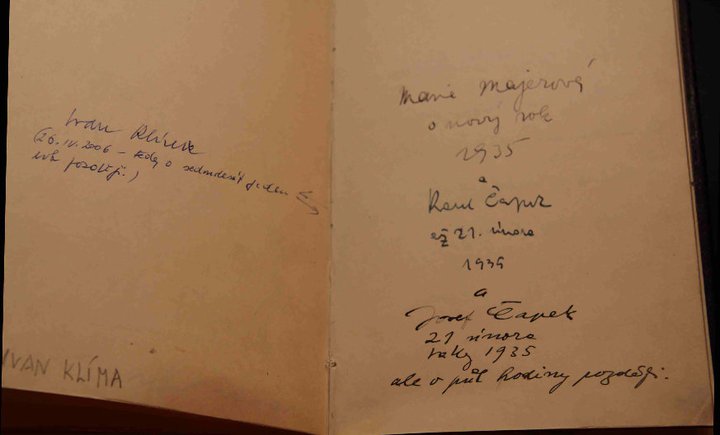 Ivan Klíma
(26.IV.2006 – tedy o sedmdesát jeden
rok později.)
IVAN KLÍMA
Marie Majerová
o nový rok
1935
a
Karel Čapek
až 21. února
1935
a
Josef Čapek
21 února
taky 1935
ale o půl hodiny později.